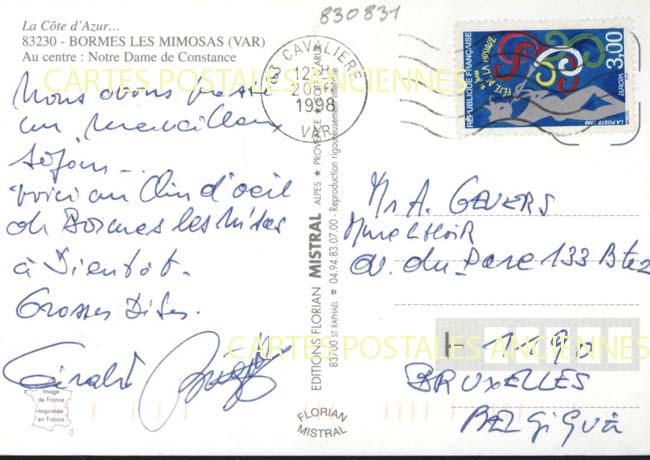 830831
La Côte d'Azur...
83230 - BORMES LES MIMOSAS (VAR)
Au centre : Notre Dame de Constance
CARTES POSTALES ANCIENNES
Nous avons passé
un merveilleux
séjour -
voici un Clin d'oeil
de Bormes les Mimosas
à Bientôt.
Grosses Bises.
83 CAVALIERE
12 H
1998
VAR
RÉPUBLIQUE FRANÇAISE
FÊTE DE LA MUSIQUE
3,00
EUROPA
LA POSTE 1998
EDITIONS FLORIAN MISTRAL ALPES ★ PROVENCE
83700 ST RAPHAEL ☎ 04.94.83.07.00 - Reproduction rigoureusement
Mr A. GEVERS
av. du Parc 133 Bte2
1190
BRUXELLES
BELgiquE
CARTES POSTALES ANCIENNES
Image
de France
Imprimée
en France
FLORIAN
MISTRAL